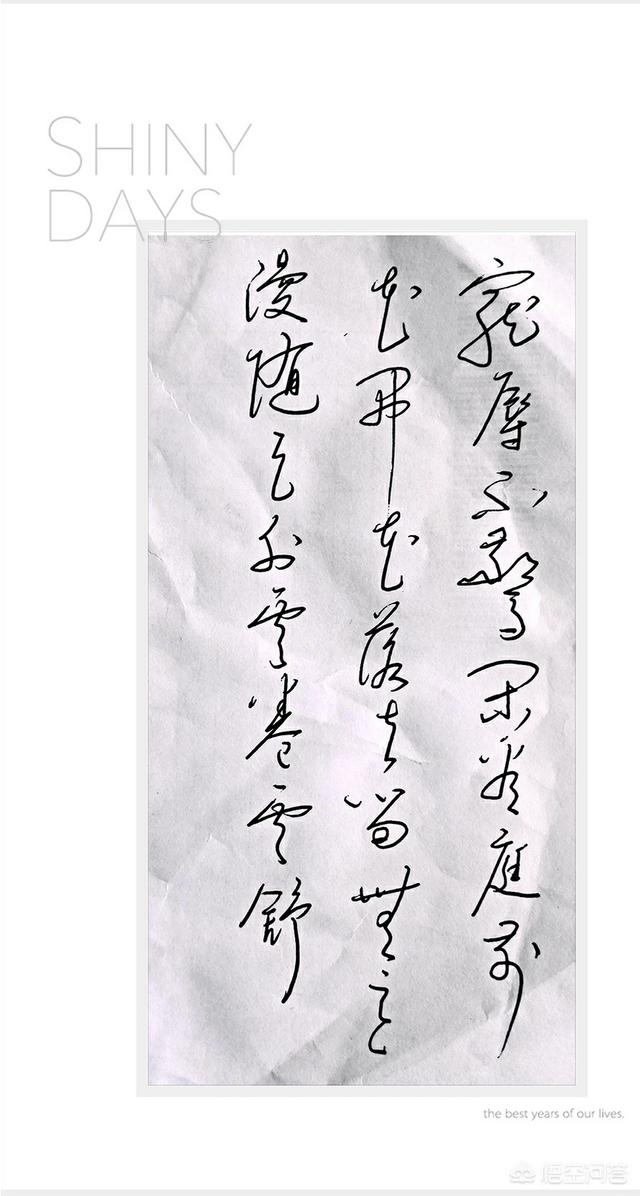 SHINY
DAYS
寵辱不驚閑看庭前
花開花落去留無意
漫随天外雲卷雲舒
the best years of our lives.
悟空问答